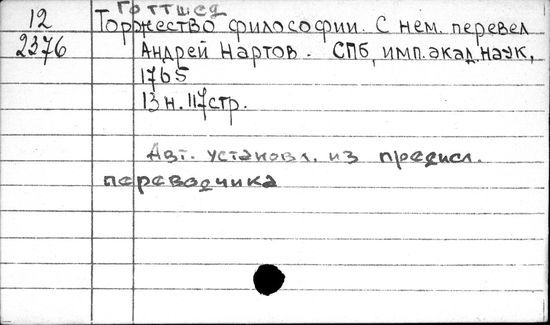 Готтшед
12 Торжество философии. С нем. перевел
2376 Андрей Нартов. СПб, имп. акад. наук,
1765
13 н. 117 стр.
Авт. установл. из предисл.
переводчика